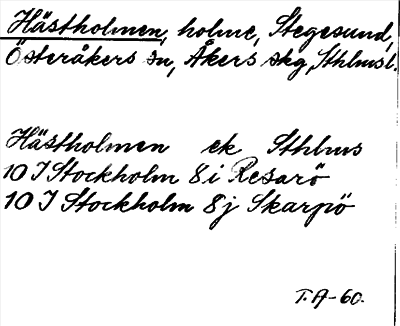 Hästholmen, holme, Stegesund,
Österåkers sn, Åkers skg, Sthlmsl.
Hästholmen ek Sthlms
10 I Stockholm 8 i Resarö
10 I Stockholm 8 j Skarpö
T.A-60.